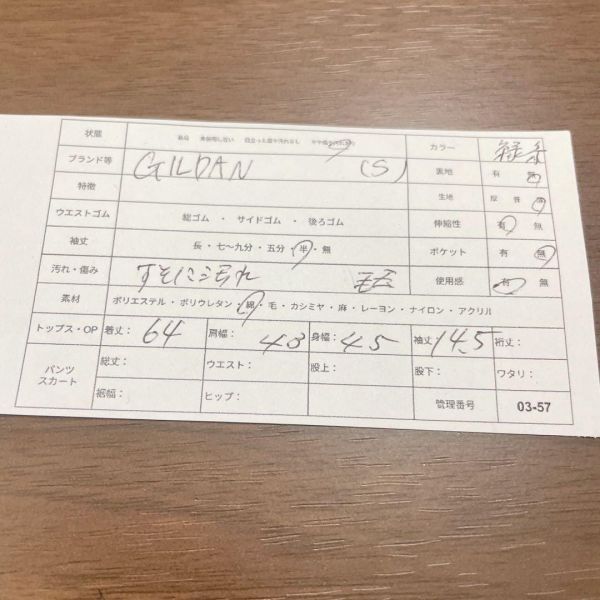 状態 新品 未使用に近い 目立った傷や汚れなし やや傷や汚れあり カラー 緑系
ブランド等 GILDAN (S) 裏地 有 無
特徴 生地 厚 普 薄
ウエストゴム 総ゴム ・ サイドゴム ・ 後ろゴム 伸縮性 有 無
袖丈 長・七〜九分・五分・半・無 ポケット 有 無
汚れ・傷み すそに汚れ 使用感 有 無
素材 ポリエステル・ポリウレタン・綿・毛・カシミヤ・麻・レーヨン・ナイロン・アクリル
トップス・OP 着丈: 64 肩幅: 43 身幅: 45 袖丈: 14.5 裄丈:
パンツ スカート 総丈: ウエスト: 股上: 股下: ワタリ:
裾幅: ヒップ: 管理番号 03-57